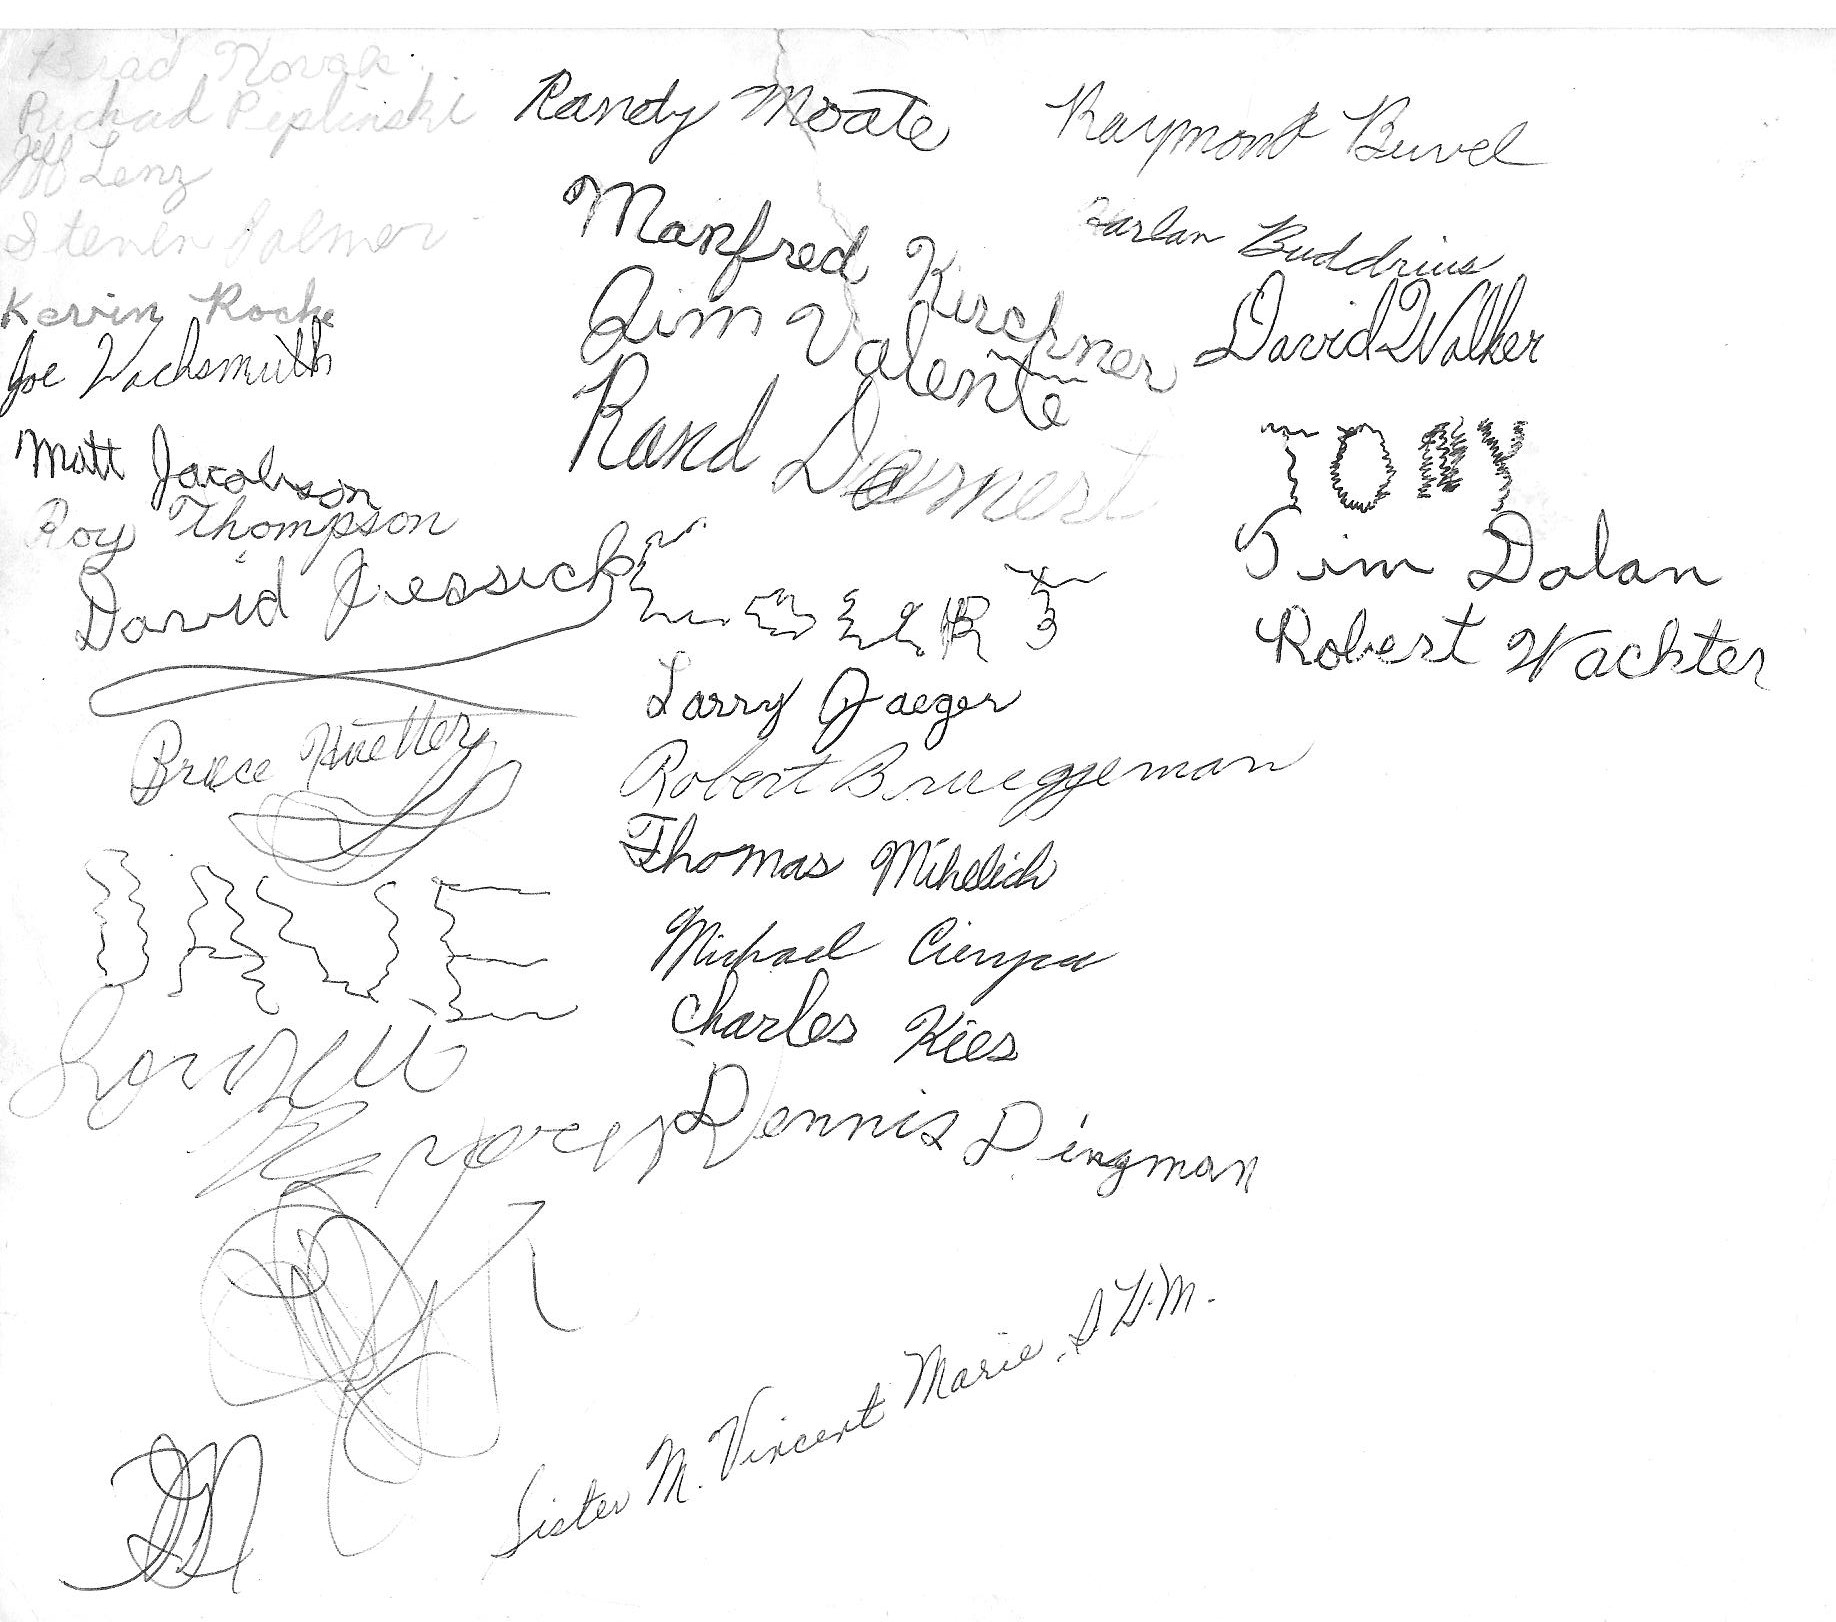 Brad Novak
Richard Peplinski
Jeff Lenz
Steven Palmer
Kevin Roche
Joe Wachsmuth
Matt Jacobson
Roy Thompson
David Jessick
Bruce Huetter
DAVE
Randy Moate
Manfred Kirchner
Jim Valente
Rand
Larry Jaeger
Robert Brueggeman
Thomas Mihelich
Michael
Charles Kies
Dennis Dingman
Raymond Buvel
Harlan Buddrius
David Walker
TONY
Tim Dolan
Robert Wachter
Sister M. Vincent Marie, I.H.M.